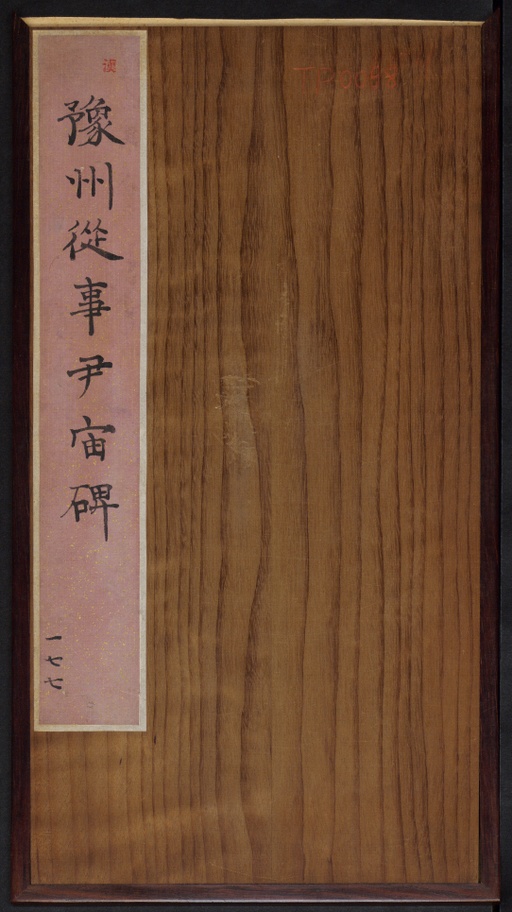 漢
豫州從事尹宙碑
一七七